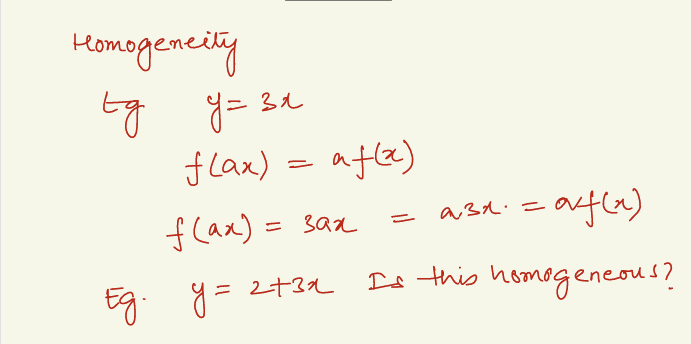 Homogeneity
Eg y = 3x
f(ax) = af(x)
f(ax) = 3ax = a3x. = af(x)
Eg. y = 2+3x Is this homogeneous?